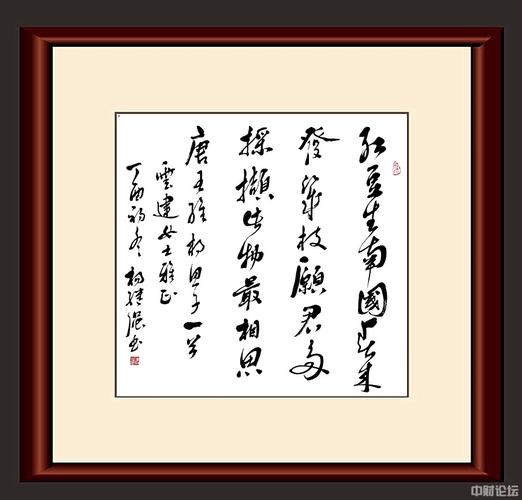 红豆生南國春来
發幾枝願君多
採擷此物最相思
唐王維相思子一首
雲建女士雅正
丁酉初冬 书
中财论坛